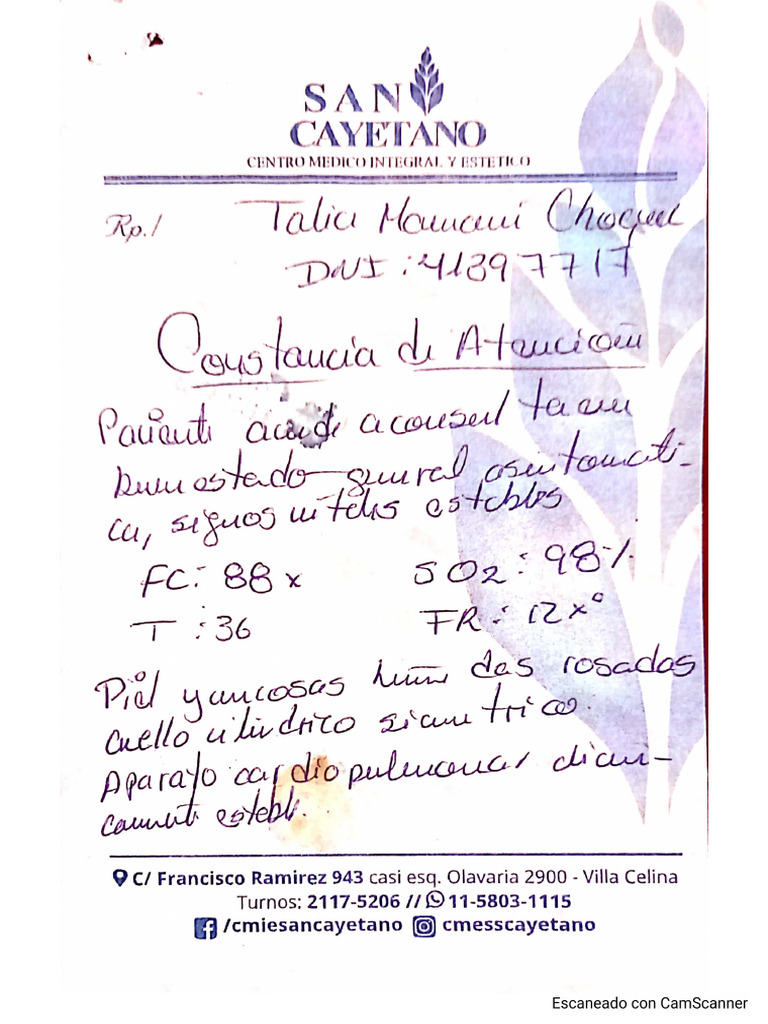 SAN
CAYETANO
CENTRO MEDICO INTEGRAL Y ESTETICO
Rp./ Talia Mamani Choque
DNI : 41397717
Constancia de Atencion
Paciente acude a consulta en
buen estado general, asintomati-
ca, signos vitales estables
FC: 88 x SO2: 98%
T : 36 FR: 12 x°
Piel y mucosas húmedas rosadas
cuello cilindrico simetrico.
Aparato cardiopulmonar clini-
camente estable.
C/ Francisco Ramirez 943 casi esq. Olavaria 2900 - Villa Celina
Turnos: 2117-5206 // 11-5803-1115
/cmiesancayetano cmesscayetano
Escaneado con CamScanner